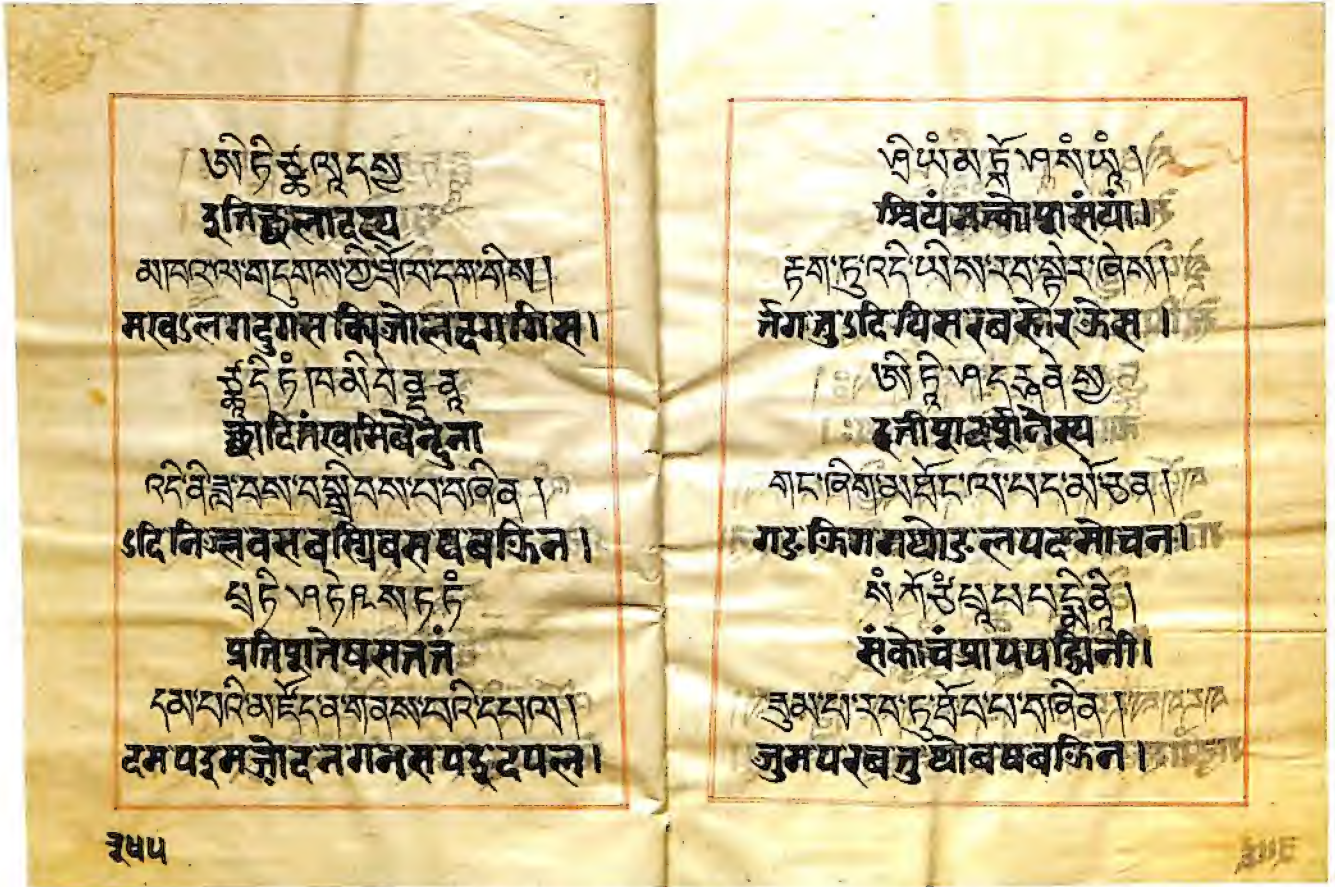 ཨི་ཏི་ཙྪ་ལཱ་ད་སྱ
इतिच्छलादस्य
མཁའ་ལ་གདུགས་ཀྱི་ དག་གིས།
मखऽल गदुगस क्यि दगगिस।
ཙྪཱ་དི་ཏཾ་ཁ་མི་བེ་ནྡུ་ནཱ
च्छादितंखमिवेन्दुना
འདི་ནི་ཟླ་བས་བསྒྲིབས་པ་བཞིན །
ऽदिनिज्लवसबस्ग्रिबसपबझिन।
པྲ་ཏི་ཤ་ཏེ་ཥ་ས་ཏ་ཏཾ
प्रतिशतेषसततं
དམ་པའི་མཛོད་ན་གནས་པའི་དཔལ །
दमपइमज़ोदनगनसपइदपल।
३५५
ཤྲི་ཡཾ་མ་ཏྐོ་ཤ་སཾ་ཡཱཾ །
श्रियंमत्कोशसंयां।
རྟག་ཏུ་འདི་ཡིས་རབ་སྟེར་ཞེས།
र्तगतुऽदियिसरबस्तेरझेस।
ཨི་ཏཱི་ཤ་ད་རྤ་ནེ་སྱ
इतीशदर्पनेस्य
གང་ཞིག་མཐོང་ལ་པད་མོ་ཅན།
गङझिगमथोङलपदमोचन।
སཾ་ཀོ་ཙཾ་པྲཱ་པ་པདྨི་ནཱི །
संकोचंप्रापपद्मिनी।
ཟུམ་པ་རབ་ཏུ་ཐོབ་པ་བཞིན །
जुमपरबतुथोबपबझिन।